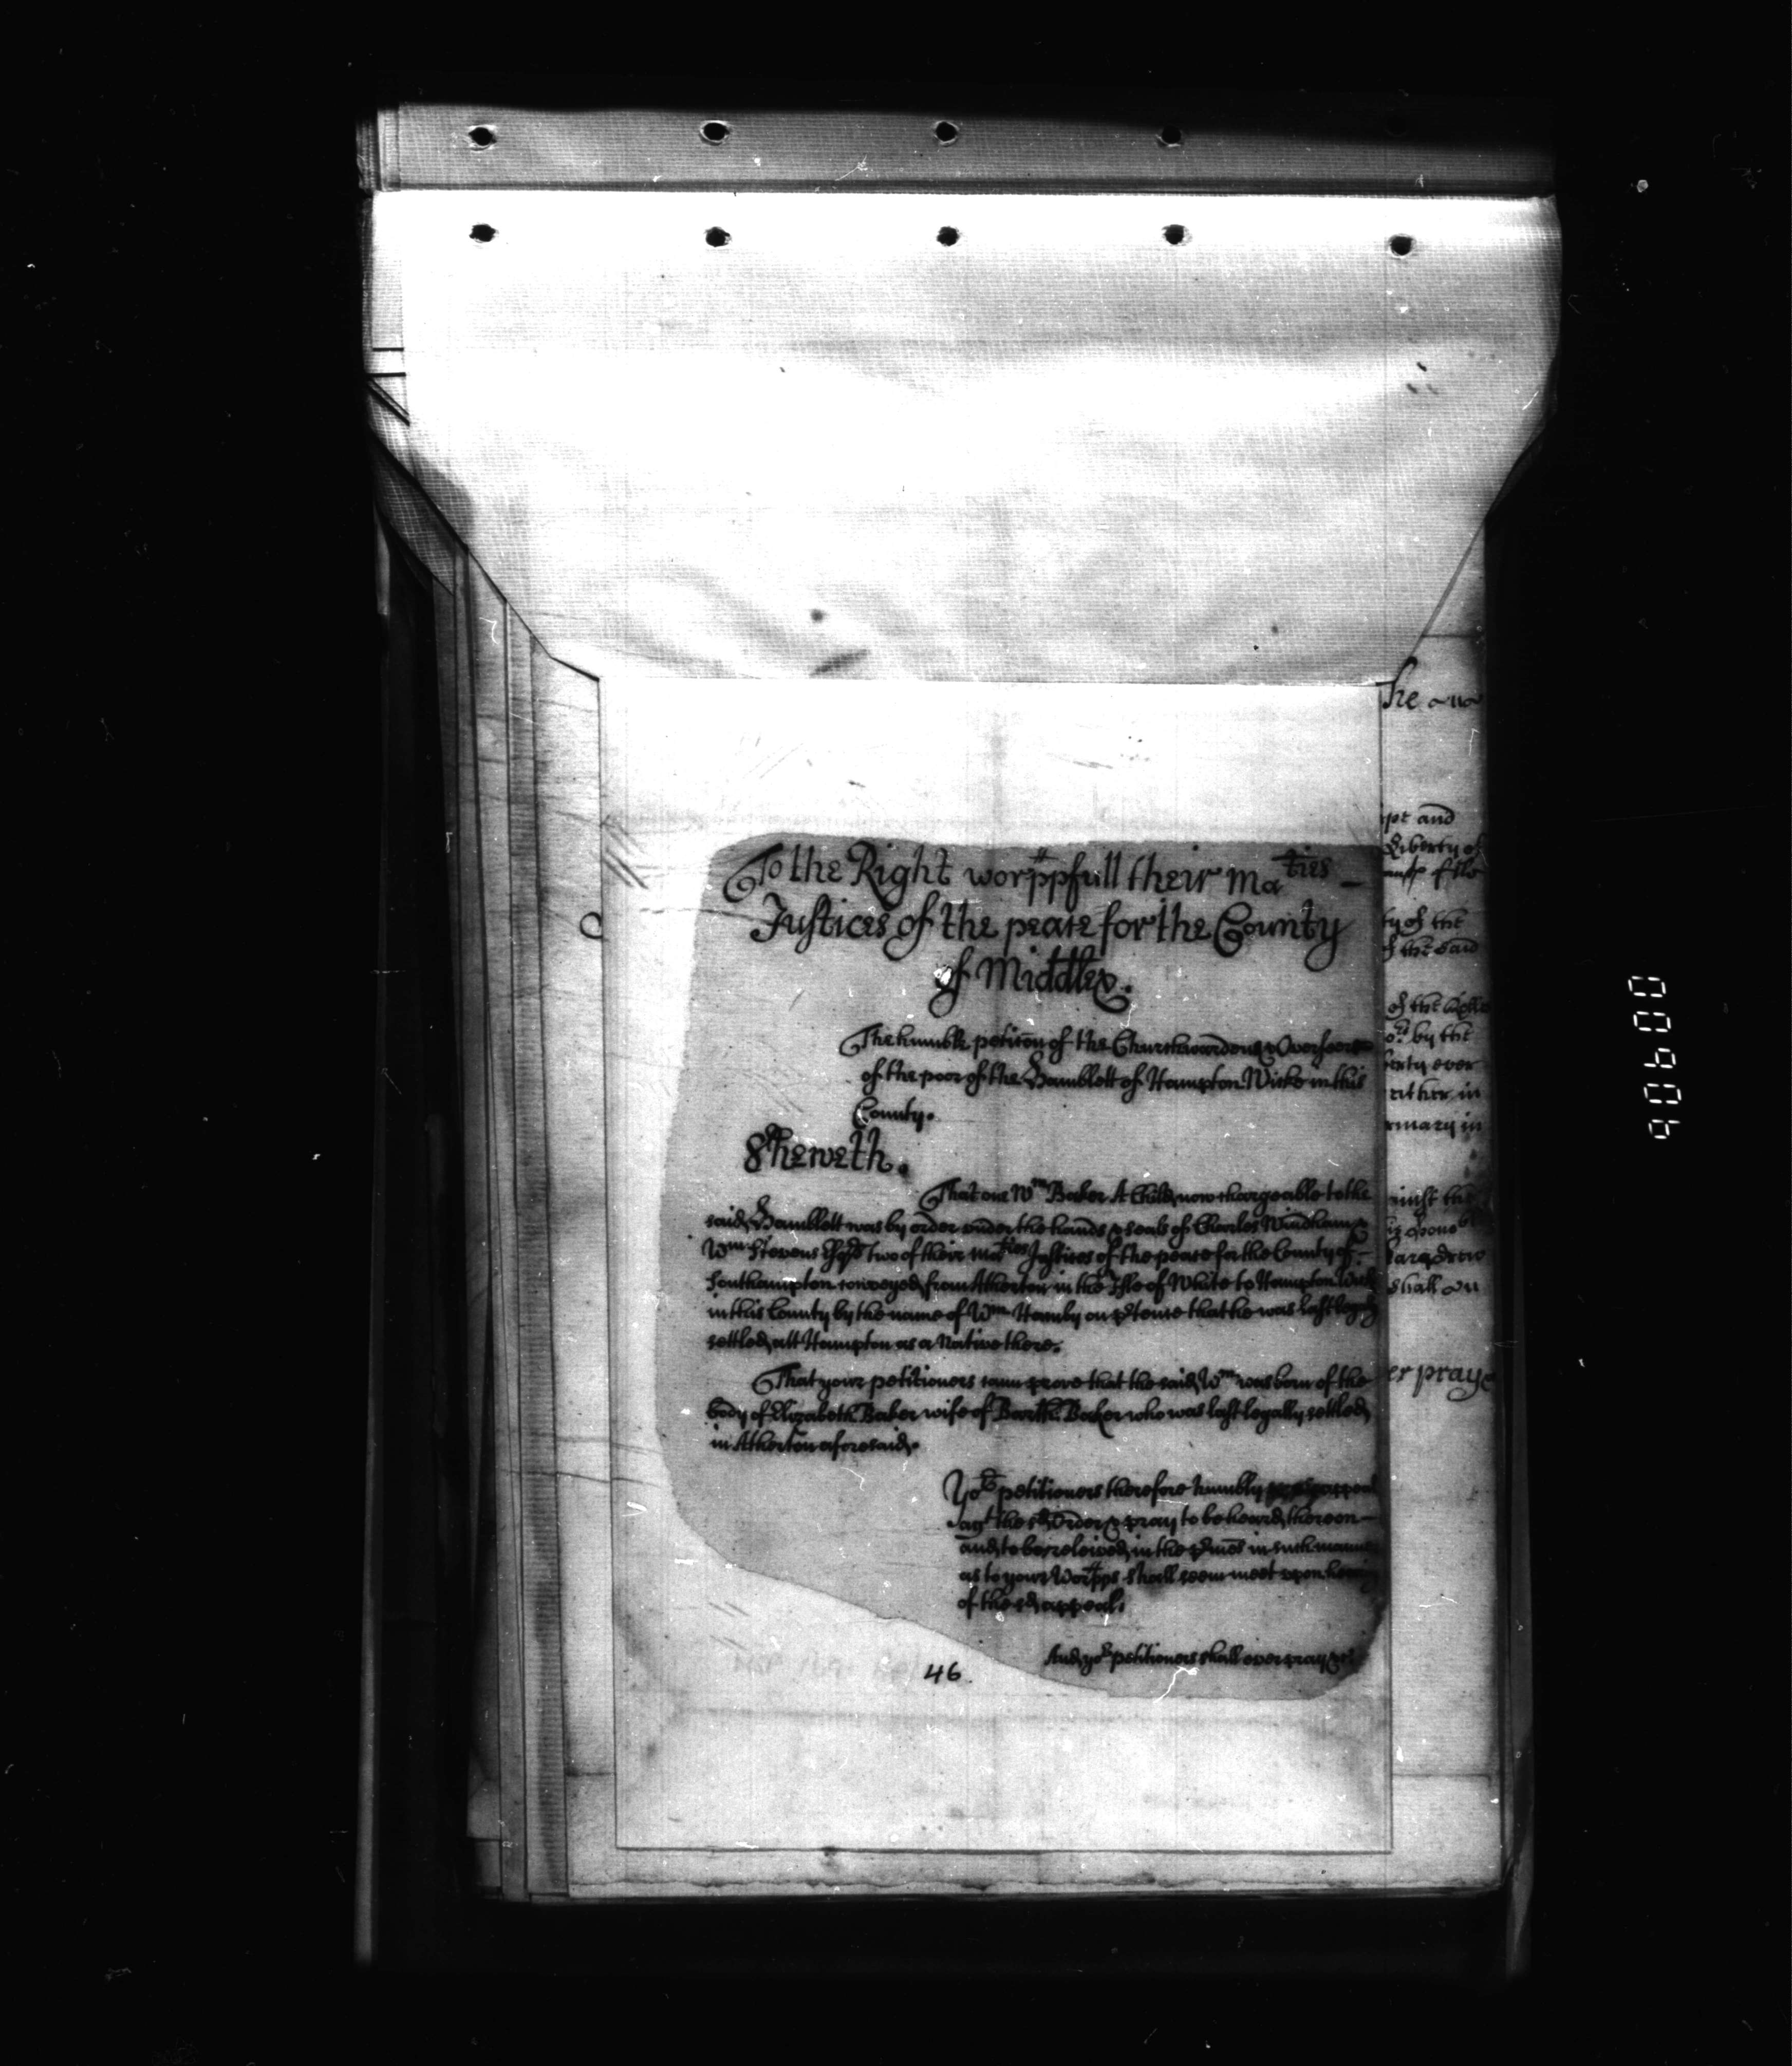 To the Right worppfull their maties
Justices of the peace for the County
of Middlex.
The humble peticon of the Churchwardens & Overseers
of the poor of the Hamblett of Hampton Wicke in this
County.
Sheweth.
That one Wm Baker A Child now chargeable to the
said Hamblett was by order under the hands & seals of Charles Windham &
Wm Stevens Esqrs two of their maties Justices of the peace for the County of
Southampton conveyed from Atherton in the Isle of White to Hampton Wick
in this County by the name of Wm Hamby on ptence that he was last legaly
settled att Hampton as a Native there.
That your petitioners cann prove that the said Wm was born of the
body of Elizabeth Baker wife of Barth. Baker who was last legally settled
in Atherton aforesaid.
Yor petitioners therefore humbly appeal
agt the sd Order & pray to be heard thereon
and to be releived in the pmes in such manner
as to your Worpps shall seem meet upon hearing
of the sd appeal.
And yor petitioners shall ever pray &c
46
he
pt and
Liberty of
ty of the
of the said
of the
by the
erty ever
either in
rmary in
ainst the
shall on
er praye
00906